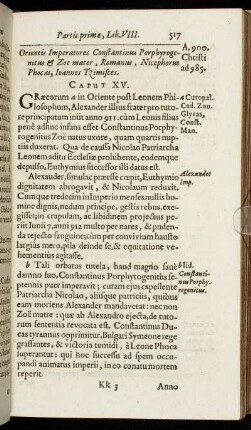 Partis primæ, Lib. VIII. 517
Orientis Imperatores Constantinus Porphyroge-
nitus & Zoe mater, Romanus, Nicephorus
Phocas, Ioannes Tzimisces.
A. 900.
Christi
ad 985.
CAPUT XV.
GRæcorum a in Oriente post Leonem Phi-
losophum, Alexander illius frater pro tuto-
re principatum iniit anno 911. cùm Leonis filius
penè adhuc infans esset Constantinus Porphy-
rogenitus Zoë natus uxore, quam quartis nup-
tiis duxerat. Qua de causa Nicolao Patriarcha
Leonem aditu Ecclesiæ prohibente, eodemque
depulso, Euthymius successor illi datus est.
a Curopal.
Ced. Zon.
Glycas,
Const.
Man.
Alexander, simulac præesse cœpit, Euthymio
dignitatem abrogavit, & Nicolaum reduxit.
Cumque tredecim in Imperio mensibus nil ho-
mine dignis, nedum principe, gestis rebus, exe-
gisset in crapulam, ac libidinem projectus pe-
riit Iunii 7. anni 912 multo per nares, & puden-
da rejecto sanguine; cùm per convivium hausto
largiùs mero, pila deinde se, & equitatione ve-
hementiùs agitasse.
Alexander
Imp.
b Tali orbatus tutela, haud magno sanè
damno suo, Constantinus Porphytogenitus se-
ptennis puer imperavit; curam ejus capessente
Patriarcha Nicolao, aliisque patriciis, quibus
eam moriens Alexander mandaverat: nec non
Zoë matre: quæ ab Alexandro ejecta, de tuto-
rum sententia revocata est. Constantinus Du-
cas tyrannus opprimitur. Bulgari Symeone rege
grassantes, & victoria tumidi, à Leone Phoca
superantur: qui hoc successu ad spem occu-
pandi animatus imperii, in eo conatu mortem
reperit.
b Iid.
Constanti-
nus Porphy-
rogenitus.
Kk 3 Anno